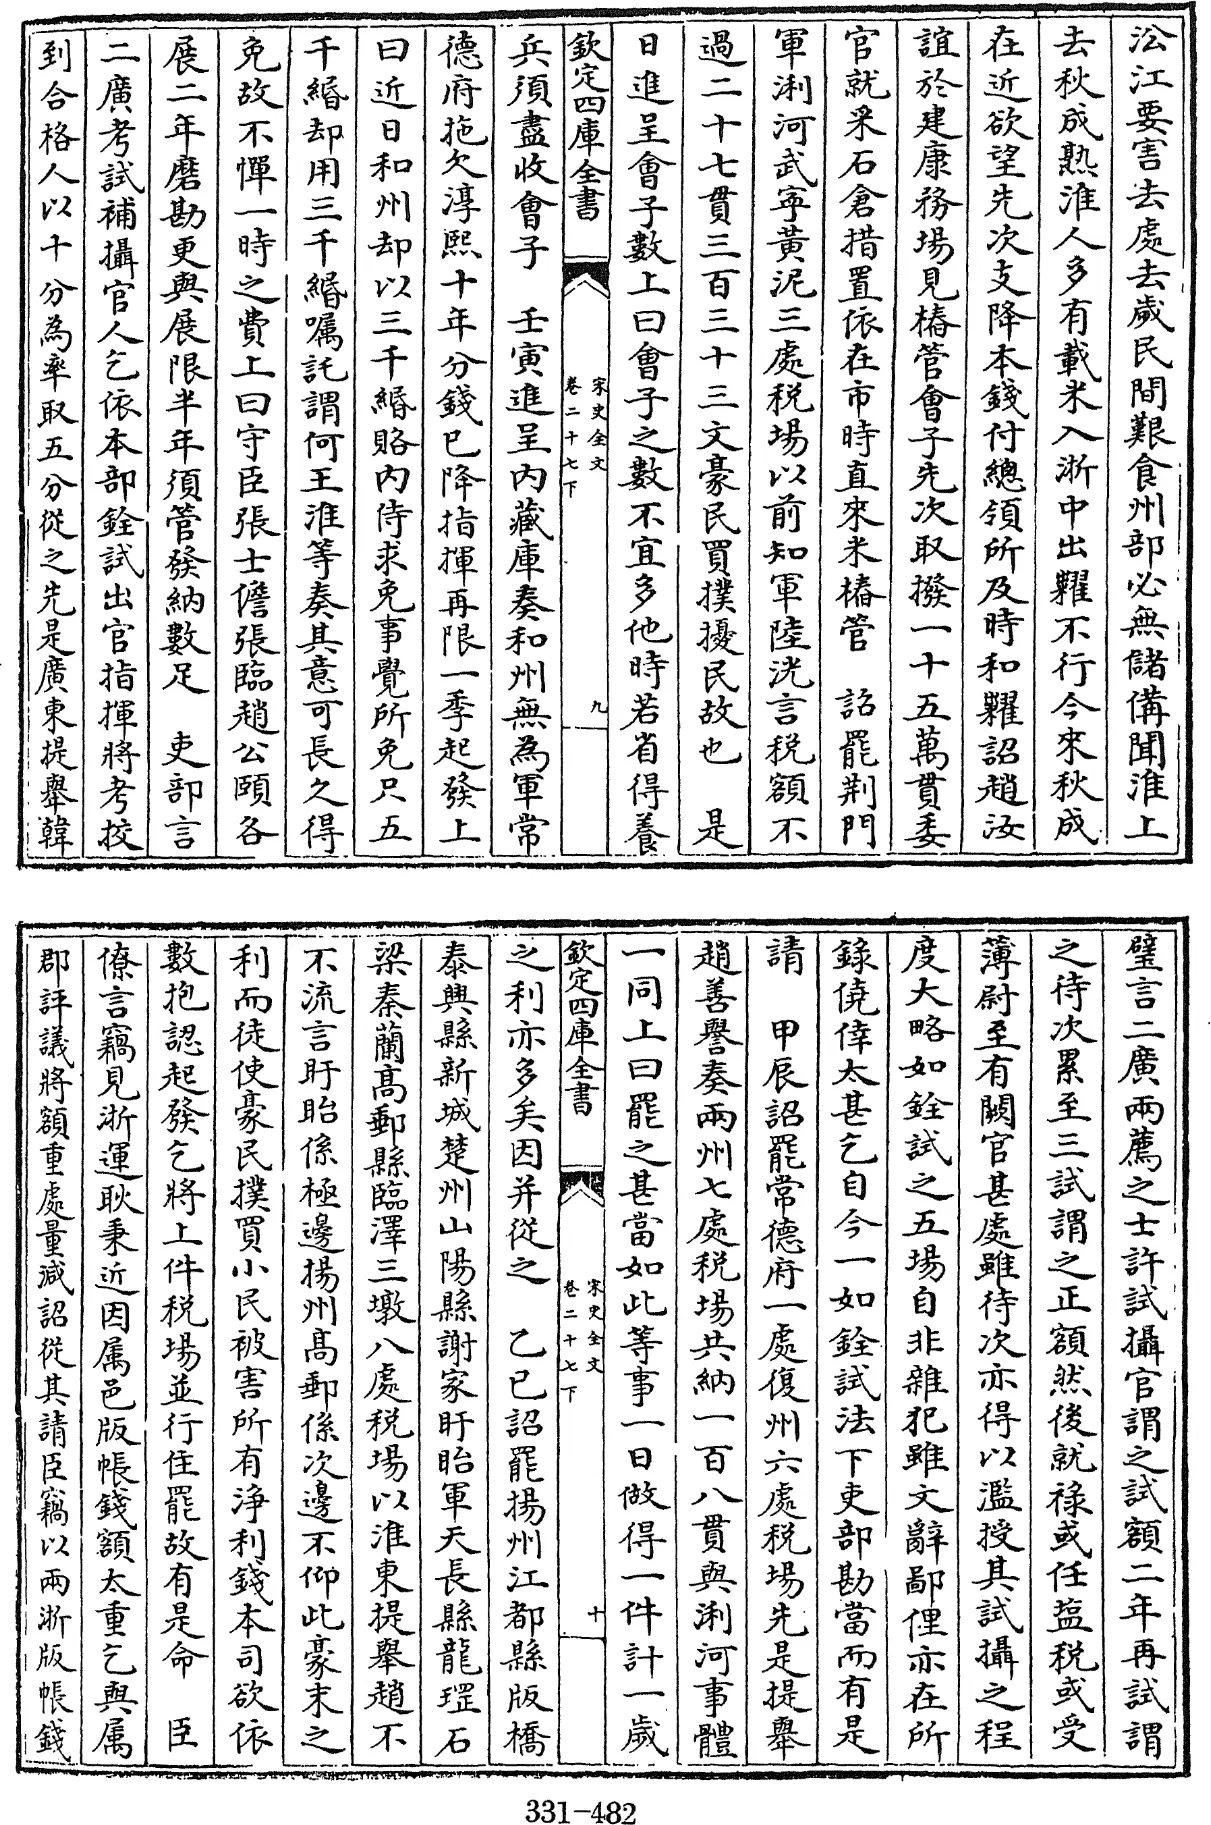 沿江要害去處去歲民間艱食州部必無儲偹聞淮上
去秋成熟淮人多有載米入浙中出糶不行今來秋成
在近欲望先次支降本錢付總領所及時和糴詔趙汝
誼於建康務場見樁管會子先次取撥一十五萬貫委
官就采石倉措置依在市時直來米樁管　詔罷荆門
軍浰河武寧黃泥三處稅場以前知軍陸洸言稅額不
過二十七貫三百三十三文豪民買撲擾民故也　是
日進呈會子數上曰會子之數不宜多他時若省得養
欽定四庫全書
宋史全文
卷二十七下
九
兵須盡收會子　壬寅進呈內藏庫奏和州無為軍常
德府拖欠淳熙十年分錢已降指揮再限一季起發上
曰近日和州却以三千緡賂內侍求免事覺所免只五
千緡却用三千緡囑託謂何王淮等奏其意可長久得
免故不憚一時之費上曰守臣張士儋張臨趙公頤各
展二年磨勘更與展限半年須管發納數足　吏部言
二廣考試補攝官人乞依本部銓試出官指揮將考校
到合格人以十分為率取五分從之先是廣東提舉韓
璧言二廣兩薦之士許試攝官謂之試額二年再試謂
之待次累至三試謂之正額然後就祿或任盐稅或受
薄尉至有闕官甚處雖待次亦得以濫授其試攝之程
度大略如銓試之五場自非雜犯雖文辭鄙俚亦在所
錄僥倖太甚乞自今一如銓試法下吏部勘當而有是
請　甲辰詔罷常德府一處復州六處稅場先是提舉
趙善譽奏兩州七處稅場共納一百八貫與浰河事體
一同上曰罷之甚當如此等事一日做得一件計一歲
欽定四庫全書
宋史全文
卷二十七下
十
之利亦多矣因并從之　乙巳詔罷揚州江都縣版橋
泰興縣新城楚州山陽縣謝家盱眙軍天長縣龍堽石
梁秦蘭高郵縣臨澤三墩八處稅場以淮東提舉趙不
不流言盱眙係極邊揚州高郵係次邊不仰此豪末之
利而徒使豪民撲買小民被害所有淨利錢本司欲依
數抱認起發乞將上件稅場並行住罷故有是命　臣
僚言竊見浙運耿秉近因属邑版帳錢額太重乞與属
郡評議將額重處量減詔從其請臣竊以兩浙版帳錢
331-482